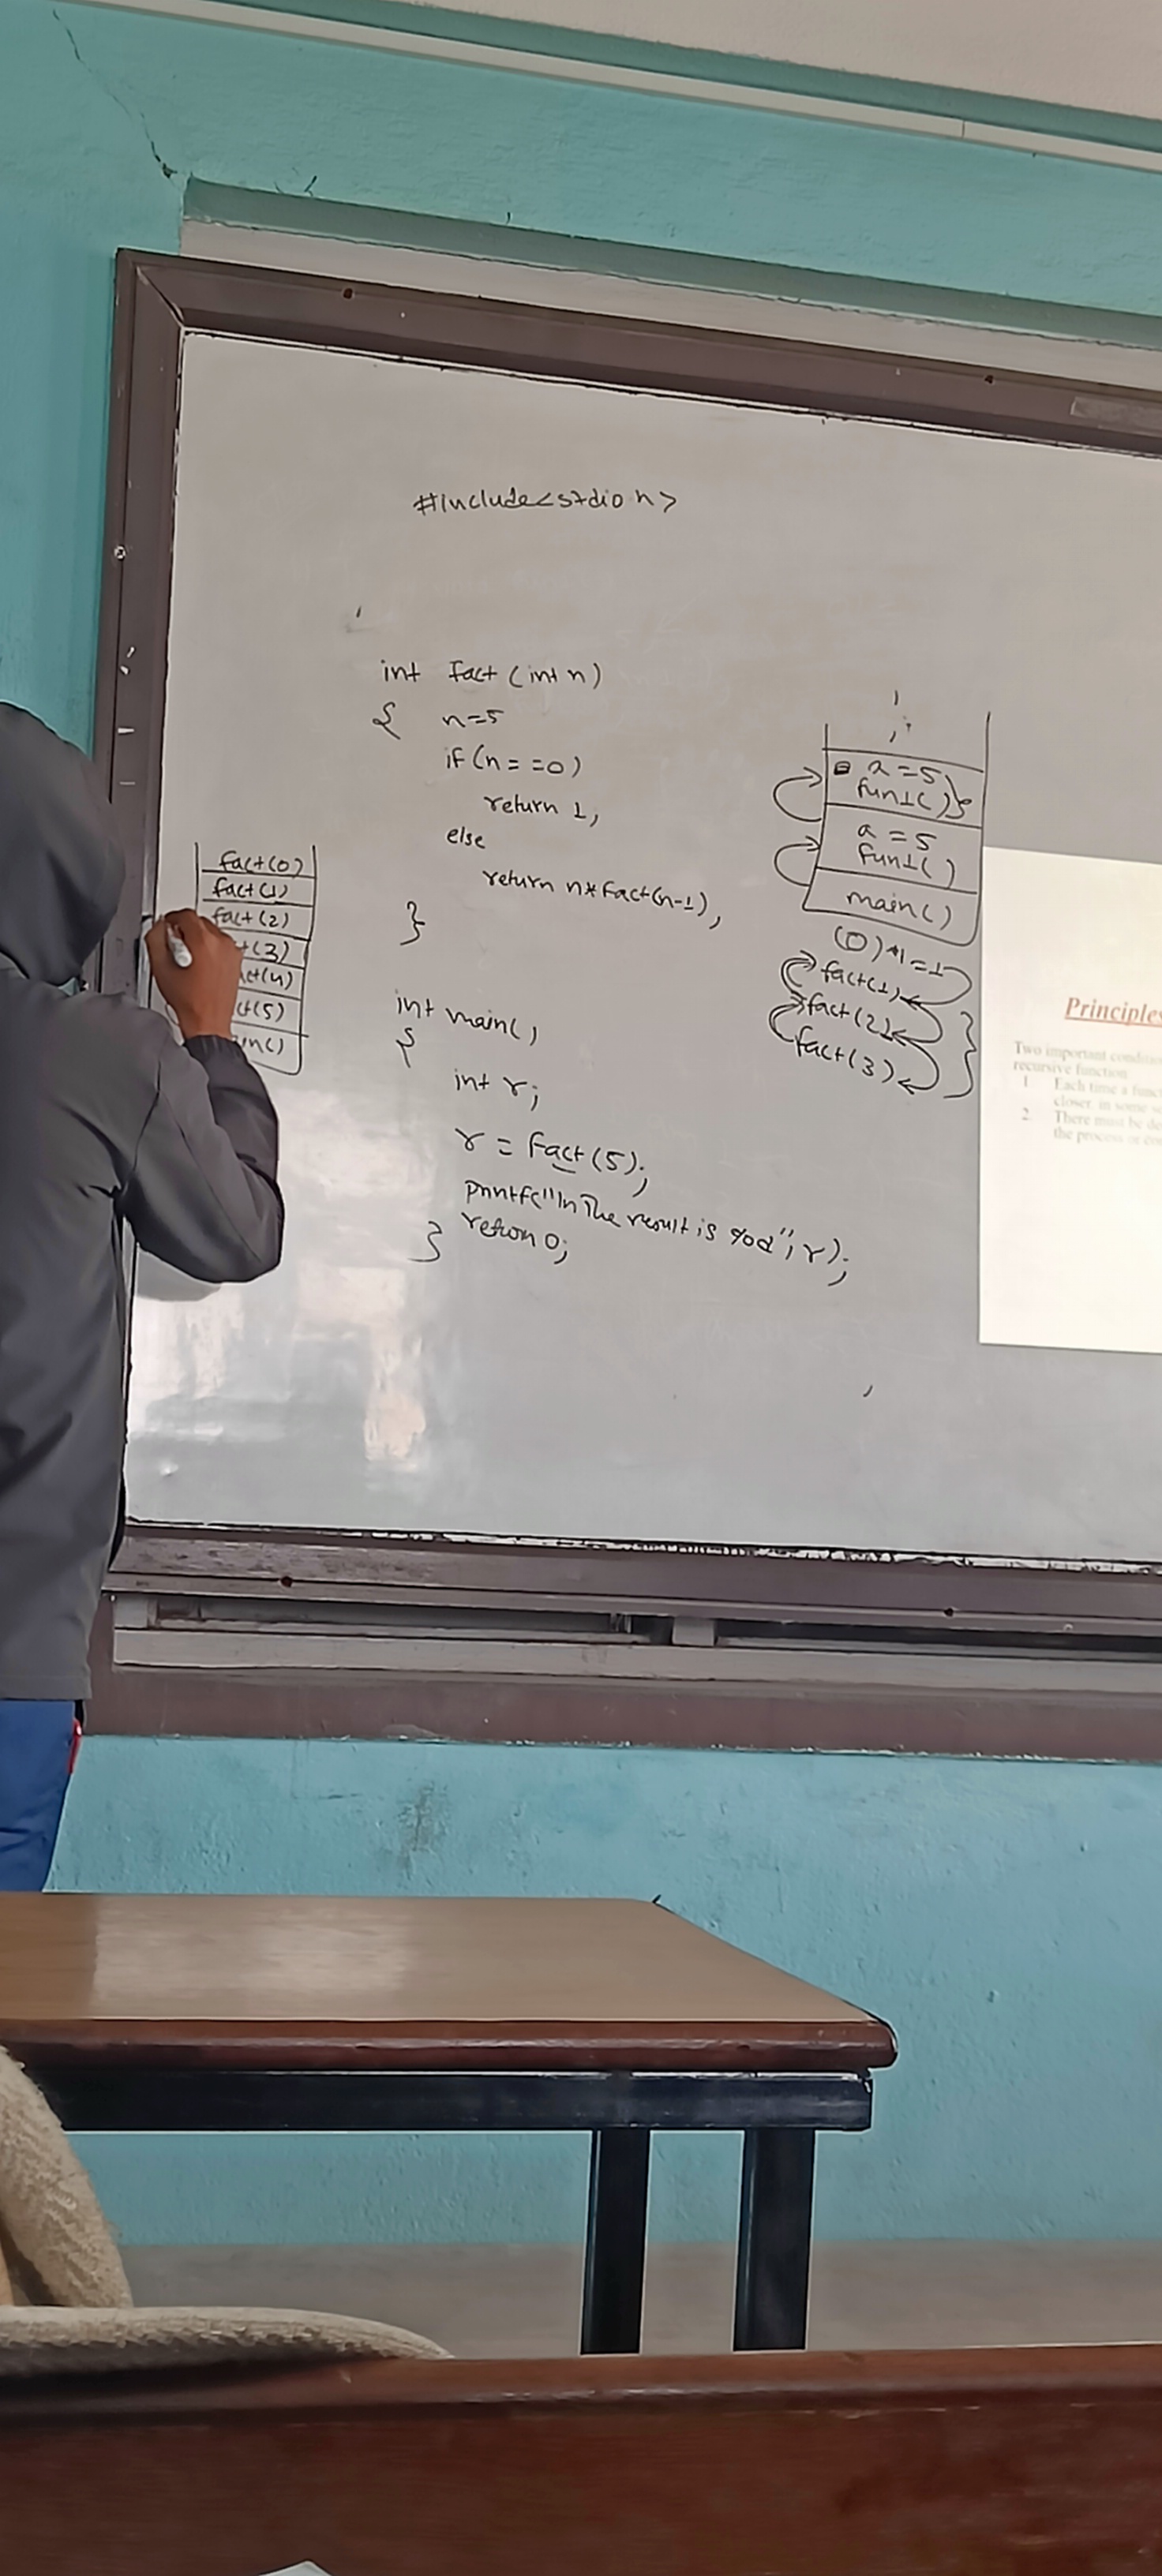 #include<stdio h>
int fact (int n)
{ n=5
if(n==0)
return 1,
else
return n*fact(n-1),
}
int main()
{
int r;
r = fact(5);
printf("\n The result is %d", r);
return 0;
}
fact(0)
fact(1)
fact(2)
t(3)
act(4)
ct(5)
in()
a=5
fun1()
a = 5
fun1()
main()
(0)*1=1
fact(1)
fact(2)
fact(3)
Principles
Two important conditio
recursive function
1. Each time a func
closer, in some s
2. There must be de
the process or co